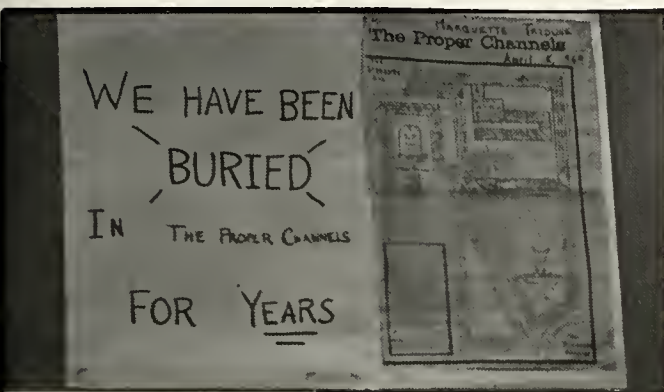 WE HAVE BEEN
BURIED
IN THE PROPER CHANNELS
FOR YEARS
MARQUETTE TRIBUNE
The Proper Channels
April